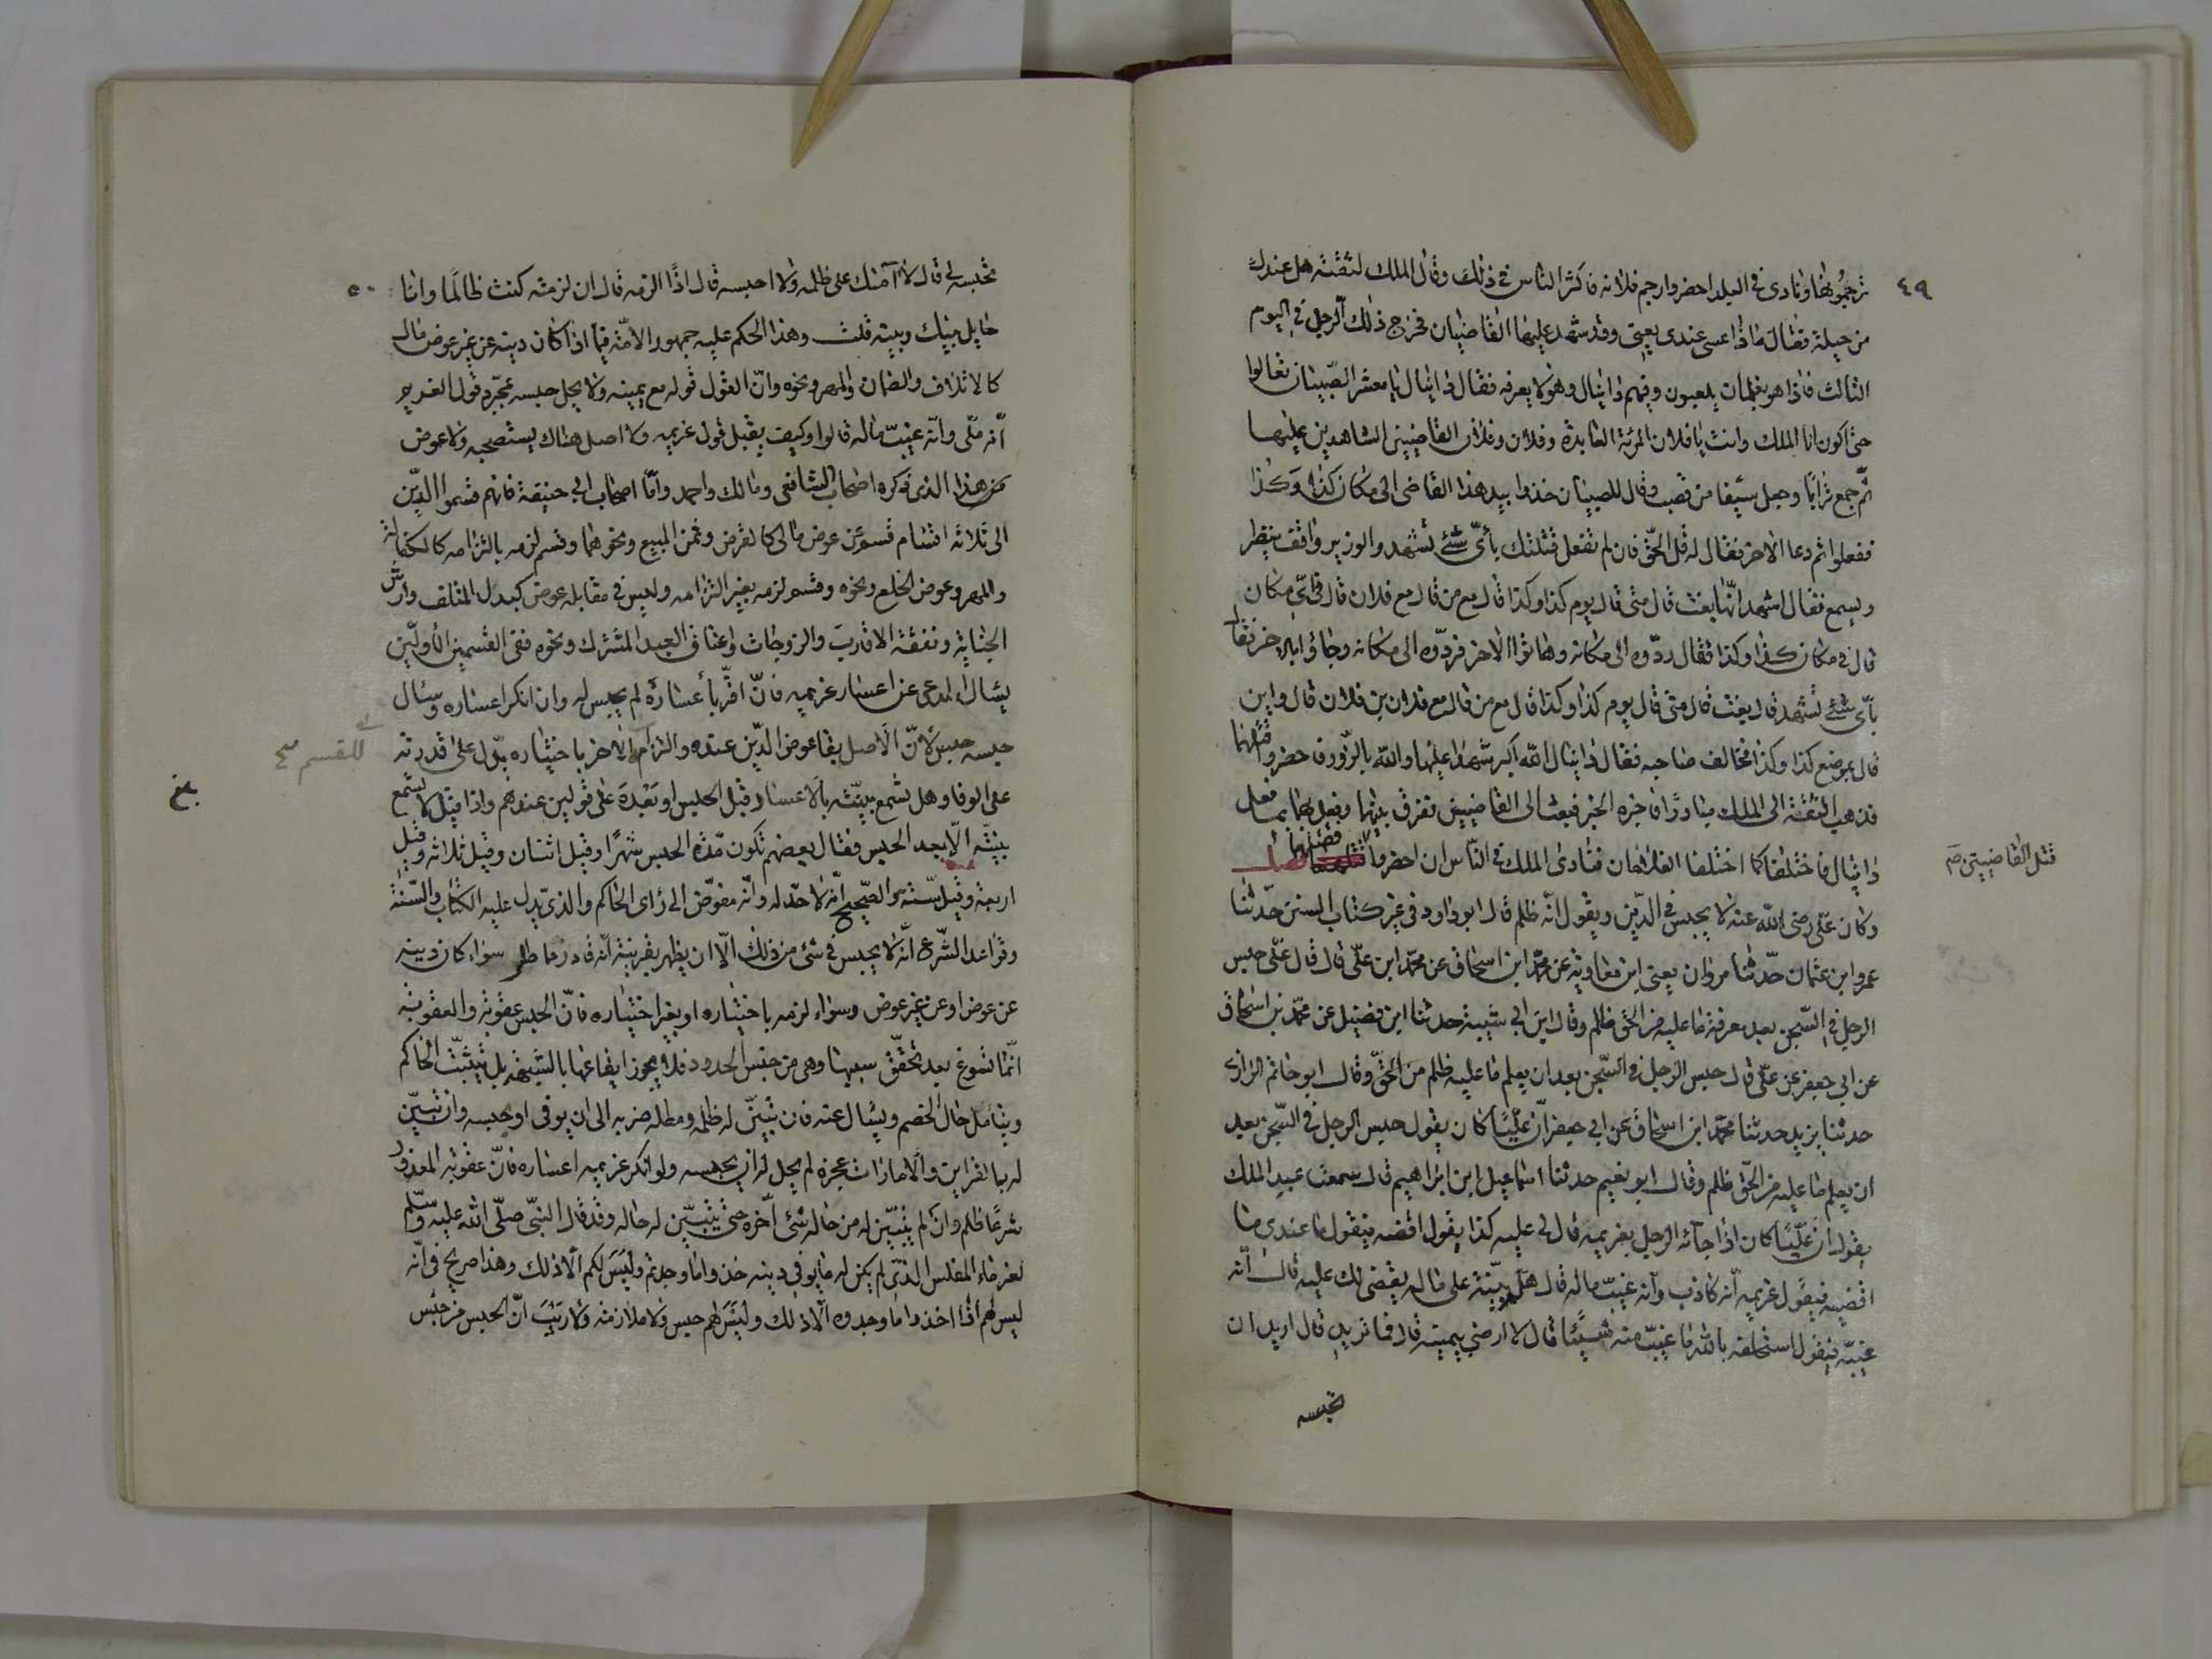 ٤٩
ترجموها ونادى في البلد احضروا رجم فلانة فاكثر الناس في ذلك وقال الملك لثقته هل عندك
من حيلة فقال ماذا عسى عندى يعنى وقد شهد عليها القاضيان فخرج ذلك الرجل في اليوم
الثالث فاذا هو بغلمان يلعبون وفيهم دانيال وهو لا يعرفه فقال دانيال يا معشر الصبيان تعالوا
حتى اكون انا الملك وانت يا فلان المرئة العابدة وفلان وفلان القاضيين الشاهدين عليها
ثم جمع ترابا وجعل سيفا من قصب وقال للصبيان خذوا بيد هذا القاضى الى مكان كذا وكذا
ففعلوا ثم دعا الاخر فقال له قل الحق فان لم تفعل قتلتك بأى شئ تشهد والوزير واقف ينظر
ويسمع فقال اشهد انها بغت قال متى قال يوم كذا وكذا قال مع من قال مع فلان قال في اى مكان
قال في مكان كذا وكذا فقال ردوه الى مكانه وهاتوا الاخر فردوه الى مكانه وجاؤا بالاخر فقال
بأى شئ تشهد قال بغت قال متى قال يوم كذا وكذا قال مع من قال مع فلان بن فلان قال واين
قال بموضع كذا وكذا فخالف صاحبه فقال دانيال الله اكبر شهدا عليها والله بالزور فاحضروا قتلهما
فذهب الثقة الى الملك مبادرا فاخبره الخبر فبعث الى القاضيين ففرق بينهما وفعل بهما ما فعل
دانيال فاختلفا كما اختلفا الغلامان فنادى الملك في الناس ان احضروا فقتلهما فصل
قتل القاضيين صح
وكان على رضى الله عنه لا يحبس في الدين ويقول انه ظلم قال ابو داود في غير كتاب السنن حدثنا
عمرو ابن عثمان حدثنا مروان يعنى ابن معاوية عن محمد ابن اسحاق عن محمد ابن على قال قال على حبس
الرجل في السجن بعد معرفة ما عليه من الحق ظلم وقال ابن ابي شيبة حدثنا ابن فضيل عن محمد بن اسحاق
عن ابي جعفر عن على قال حبس الرجل في السجن بعد ان يعلم ما عليه ظلم من الحق وقال ابو حاتم الرازى
حدثنا يزيد حدثنا محمد ابن اسحاق عن ابي جعفر ان عليا كان يقول حبس الرجل في السجن بعد
ان يعلم ما عليه من الحق ظلم وقال ابو نعيم حدثنا اسماعيل ابن ابراهيم قال سمعت عبد الملك
يقول ان عليا كان اذا جائه الرجل بغريمه قال لى عليه كذا يقول اقضه فيقول ما عندى ما
اقضيه فيقول غريمه انه كاذب وانه غيب ماله قال هلم بينة على ماله يقضى لك عليه قال انه
غيبه فيقول استحلفه بالله ما غيب منه شيئا قال لا ارضى بيمينه قال فما تريد قال اريد ان
تحبسه
٥٠
تحبسه لى قال لا آمنك على ظلمه ولا احبسه قال اذا الزمه قال ان لزمته كنت ظالما وانا
حايل بينك وبينه قلت وهذا الحكم عليه جمهور الامة فيما اذا كان دينه عن غير عوض مال
كالاتلاف والضمان والمهر ونحوه وان القول قوله مع يمينه ولا يحل حبسه بمجرد قول الغريم
انه ملى وانه غيب ماله قالوا وكيف يقبل قول غريمه ولا اصل هناك يستصحبه ولا عوض
هذا الذى ذكره اصحاب الشافعى ومالك واحمد واما اصحاب ابي حنيفة فانهم قسموا الدين
الى ثلاثة اقسام قسم عن عوض مالى كالقرض وثمن المبيع ونحوهما وقسم لزمه بالتزامه كالكفالة
والمهر وعوض الخلع ونحوه وقسم لزمه بغير التزامه وليس في مقابله عوض كبدل المتلف وارش
الجناية ونفقة الاقارب والزوجات واعتاق العبد المشترك ونحوه ففى القسمين الاولين
يسال المدعى عن اعسار غريمه فان اقر بأعساره لم يحبس له وان انكر اعساره وسئال
حبسه حبس لان الاصل بقا عوض الدين عنده والتزام الاخر باختياره يدل على قدرته
للقسم صح
على الوفا وهل تسمع بينته بالاعسار قبل الحبس او بعده على قولين عندهم واذا قيل لا تسمع
بلغ
بينته الا بعد الحبس فقال بعضهم تكون مدة الحبس شهرا وقيل اثنان وقيل ثلاثة وقيل
اربعة وقيل ستة والصحيح انه لا حد له وانه مفوض الى راى الحاكم والذى يدل عليه الكتاب والسنة
وقواعد الشرع انه لا يحبس في شى من ذلك الا ان يظهر بقرينة انه قادر مماطل سواء كان دينه
عن عوض او عن غير عوض وسواء لزمه باختياره او بغير اختياره فان الحبس عقوبة والعقوبة
انما تسوغ بعد تحقق سببها وهى من جنس الحدود فلا يجوز ايقاعها بالشبهة بل يتثبت الحاكم
ويتامل حال الخصم ويسال عنه فان تبين له ظلمه ومطله ضربه الى ان يوفى او حبسه وان تبين
له بالقراين والامارات عجزه لم يحل له ان يحبسه ولو انكر غريمه اعساره فان عقوبة المعذور
شرعا ظلم وان لم يتبين له من حاله شئ اخره حتى يتبين له حاله وقد قال النبى صلى الله عليه وسلم
لغرماء المفلس الذى لم يكن له ما يوفى دينه خذوا ما وجدتم وليس لكم الا ذلك وهذا صريح في انه
ليس لهم اذا اخذوا ما وجدوه الا ذلك وليس لهم حبس ولا ملازمة ولا ريب ان الحبس من جنس